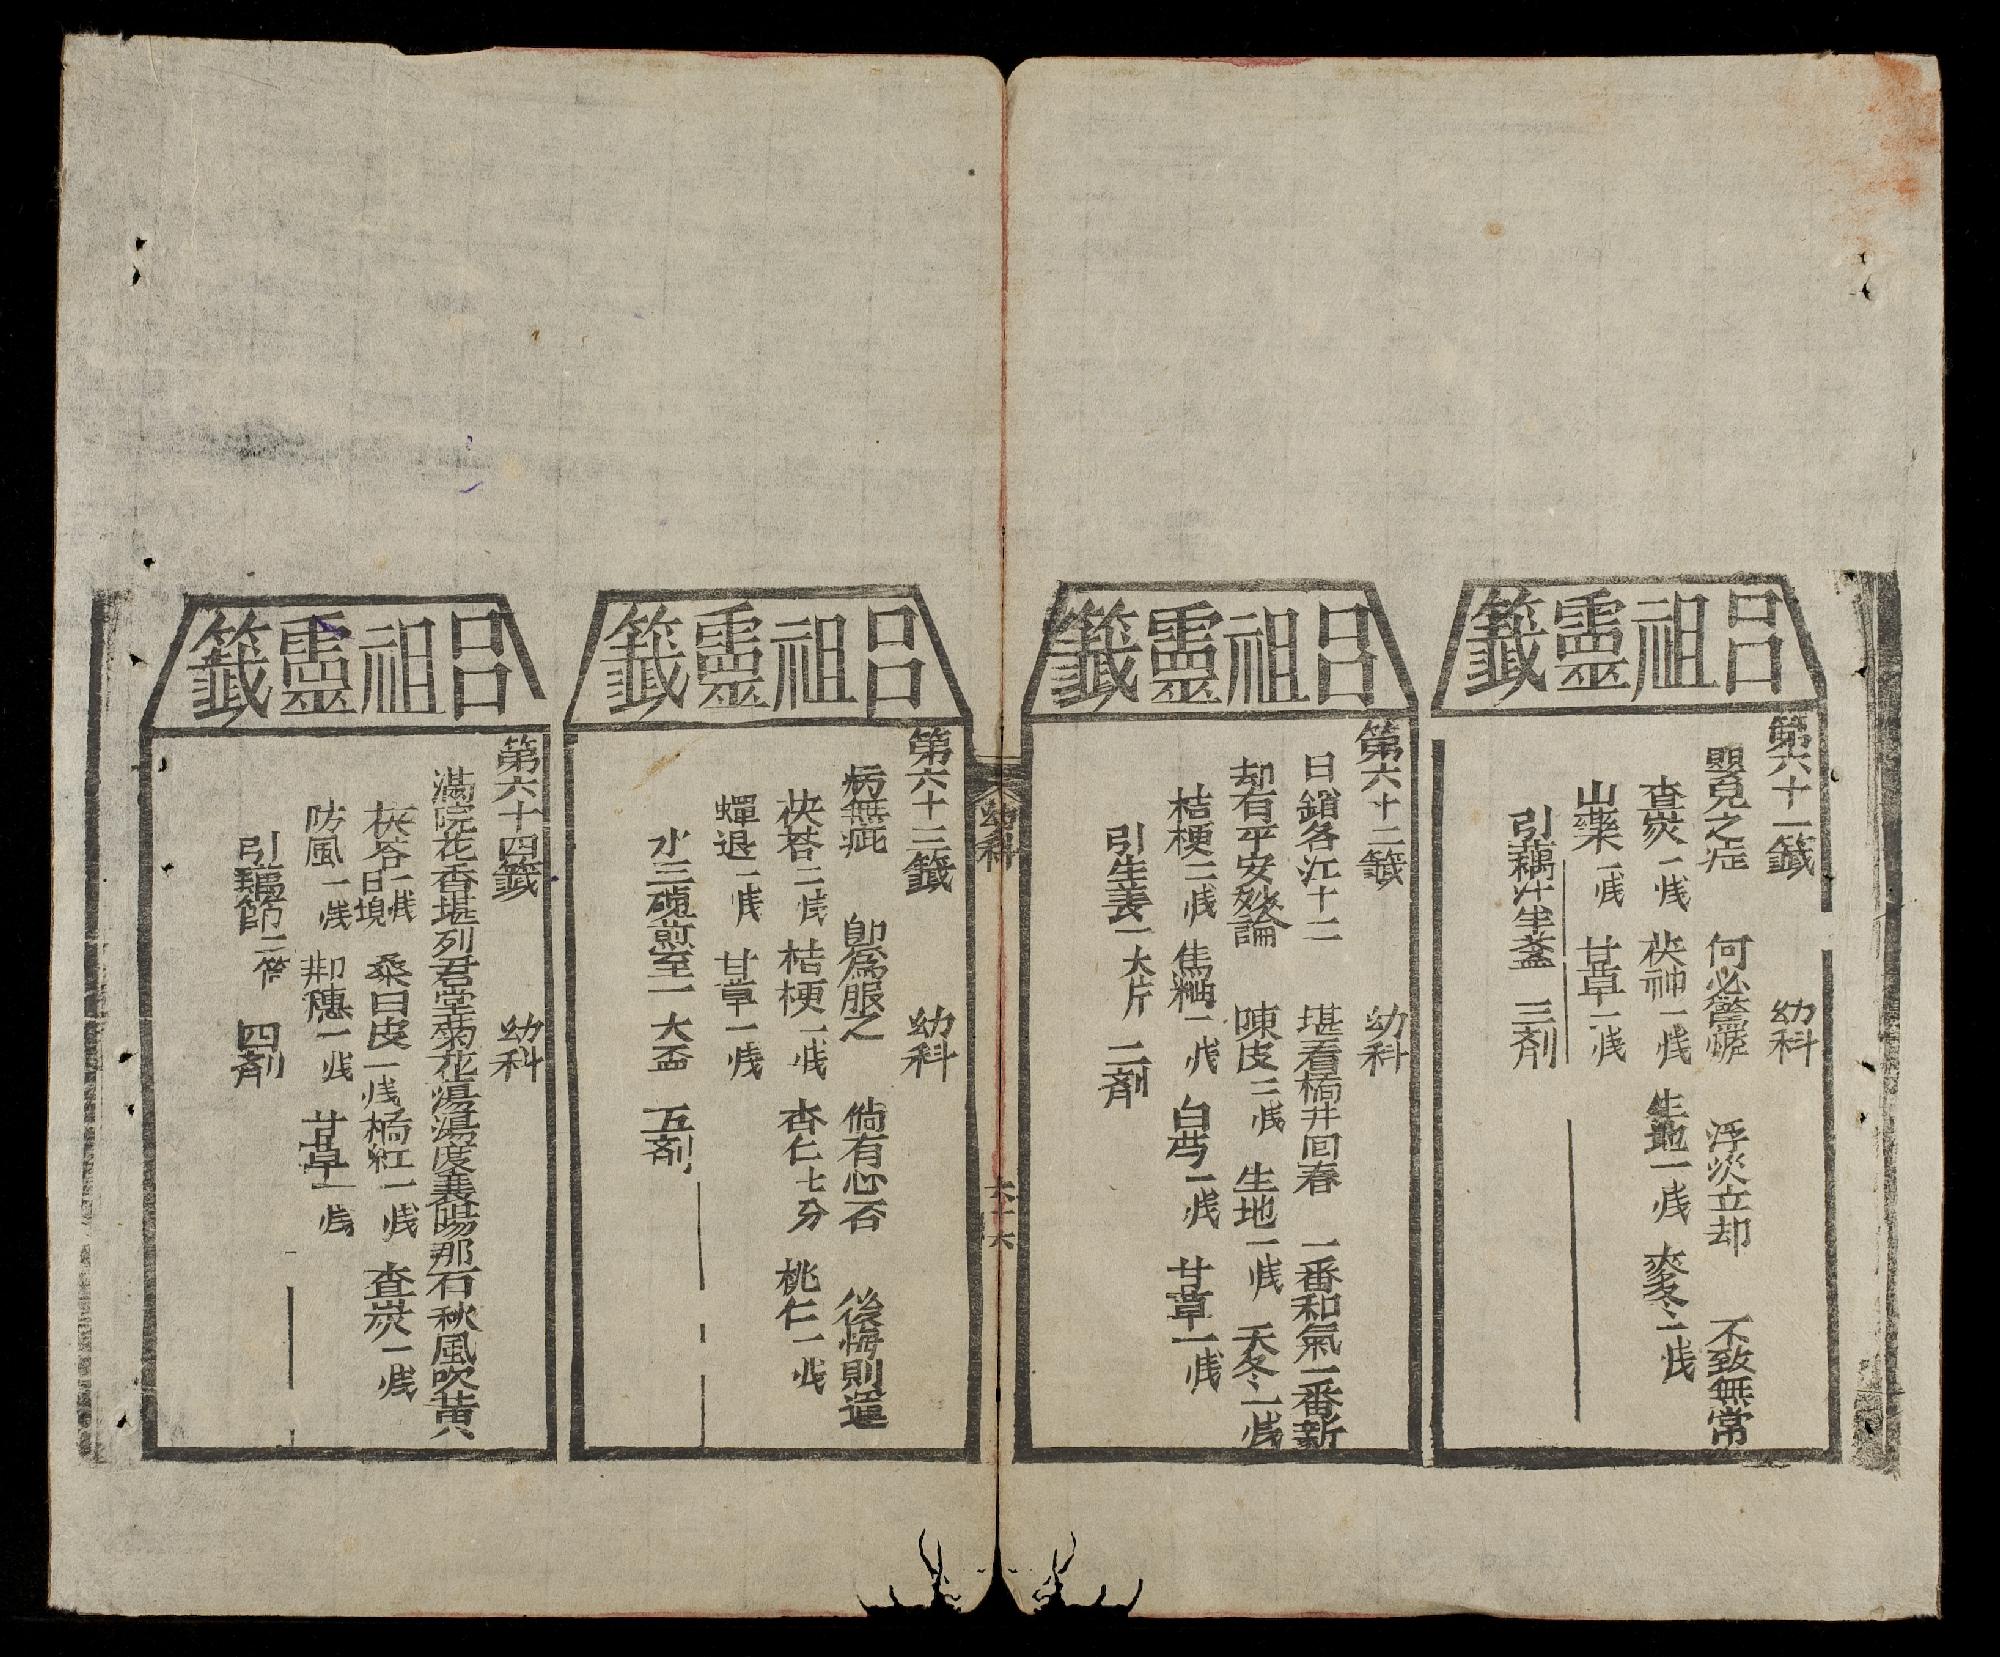 呂祖靈籤
第六十一籤 幼科
嬰兒之症 何必驚慌 浮災立却 不致無常
查炭一戋 茯神一戋 生地一戋 麥冬二戋
山藥一戋 甘草一戋
引藕汁半盞 三剂
呂祖靈籤
第六十二籤 幼科
日鎖各江十二 堪看橋井囘春 一番和氣一番新
却有平安妙論 陳皮二戋 生地一戋 天冬二戋
桔梗二戋 焦粬一戋 白芍一戋 甘草一戋
引生姜一大片 二剂
幼科
六十六
呂祖靈籤
第六十三籤 幼科
病無疵 卽爲服之 倘有心否 後悔則遲
茯苓二戋 桔梗一戋 杏仁七分 桃仁一戋
蟬退一戋 甘草一戋
水三碗煎至一大盃 五剂
呂祖靈籤
第六十四籤 幼科
滿院花香堪列君堂菊花湯湯度襄陽那石秋風吹黃
茯苓一戋 桑白皮一戋 橘紅一戋 查炭一戋
防風一戋 荆穗一戋 甘草一戋
引藕節二節 四剂